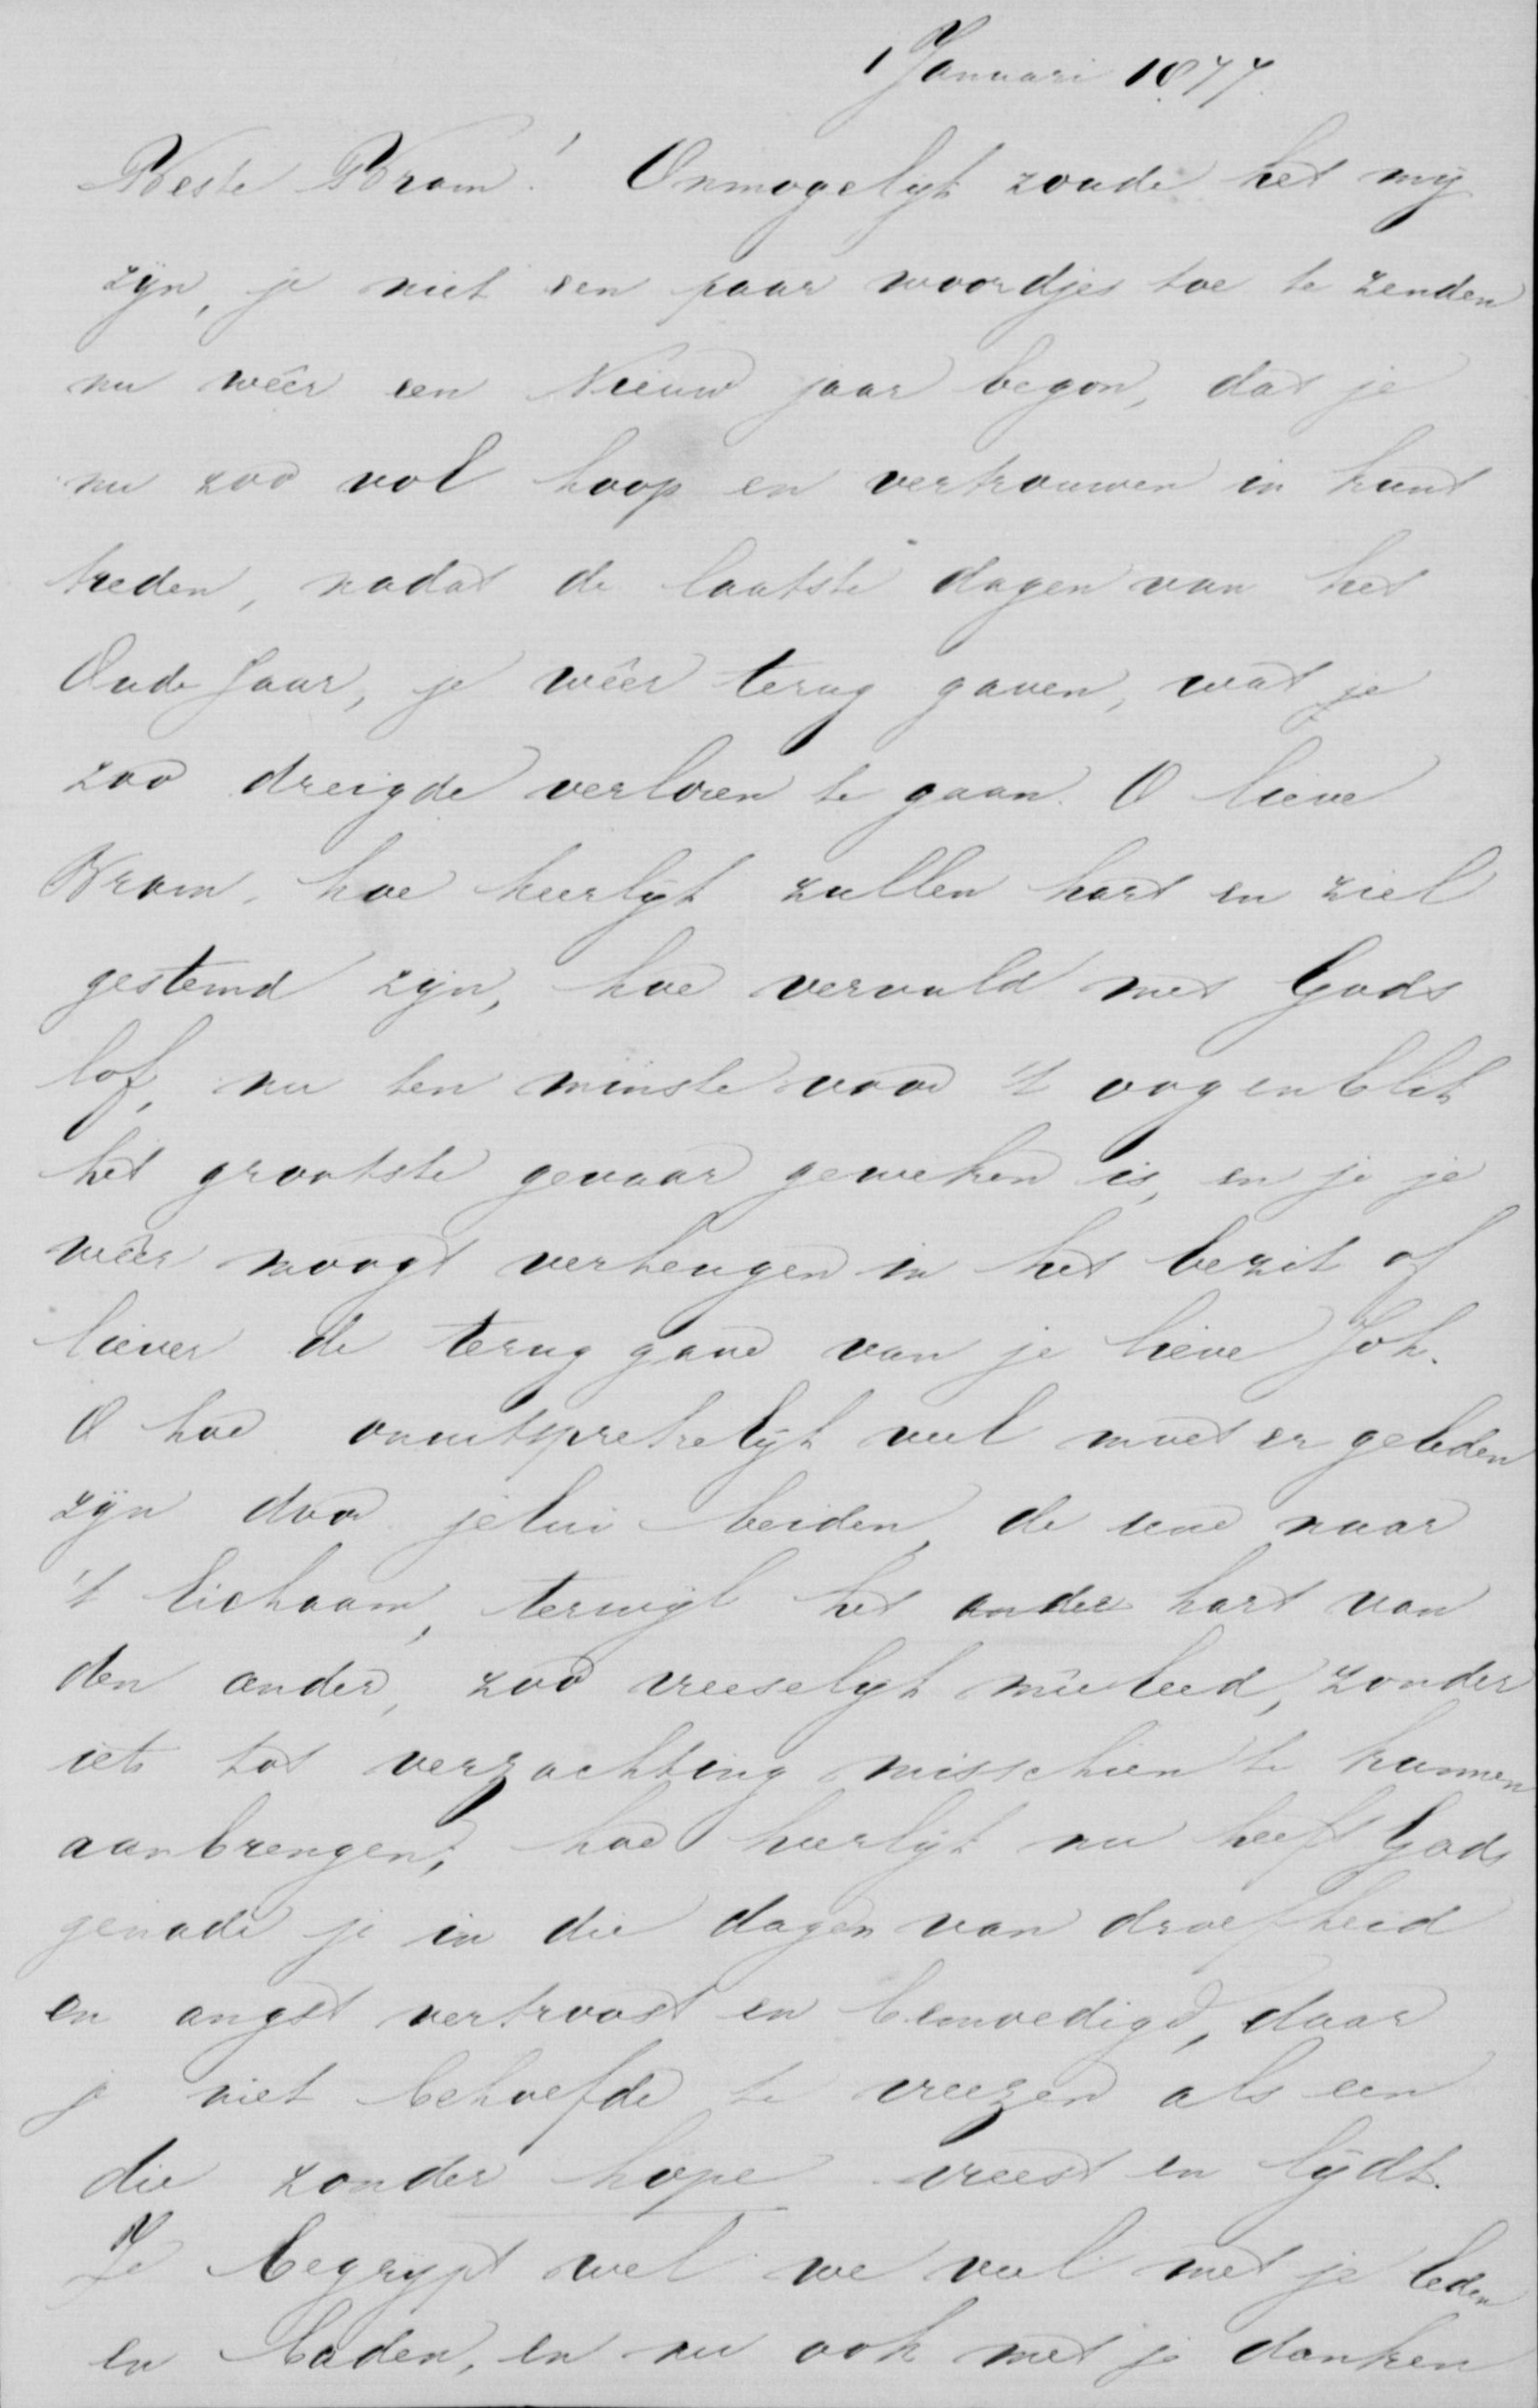 1 Januari 1877.
Beste Bram! Onmogelijk zoude het mij
zijn, je niet een paar woordjes toe te zenden
nu wêer een Nieuw jaar begon, dat je
nu zoo vol hoop en vertrouwen in kunt
treden, nadat de laatste dagen van het
Oude Jaar, je wêer terug gaven, wat je
zoo dreigde verloren te gaan. O lieve
Bram, hoe heerlijk zullen hart en ziel
gestemd zijn, hoe vervuld met Gods
lof, nu ten minste voor 't oogenblik
het grootste gevaar geweken is, en je je
wêer moogt verheugen in het bezit of
liever de terug gave van je lieve Joh.
O hoe onuitsprekelijk veel moet er geleden
zijn door jelui beiden, de eene naar
't lichaam, terwijl het ander hart van
den ander, zoo vreeselijk meêleed, zonder
iets tot verzachting misschien te kunnen
aanbrengen; hoe heerlijk nu heeft Gods
genade je in die dagen van droefheid
en angst vertroost en bemoedigd, daar
je niet behoefde te vreezen als een
die zonder hope vreest en lijdt.
Je begrijpt wel we veel met je leden
en baden, en nu ook met je danken